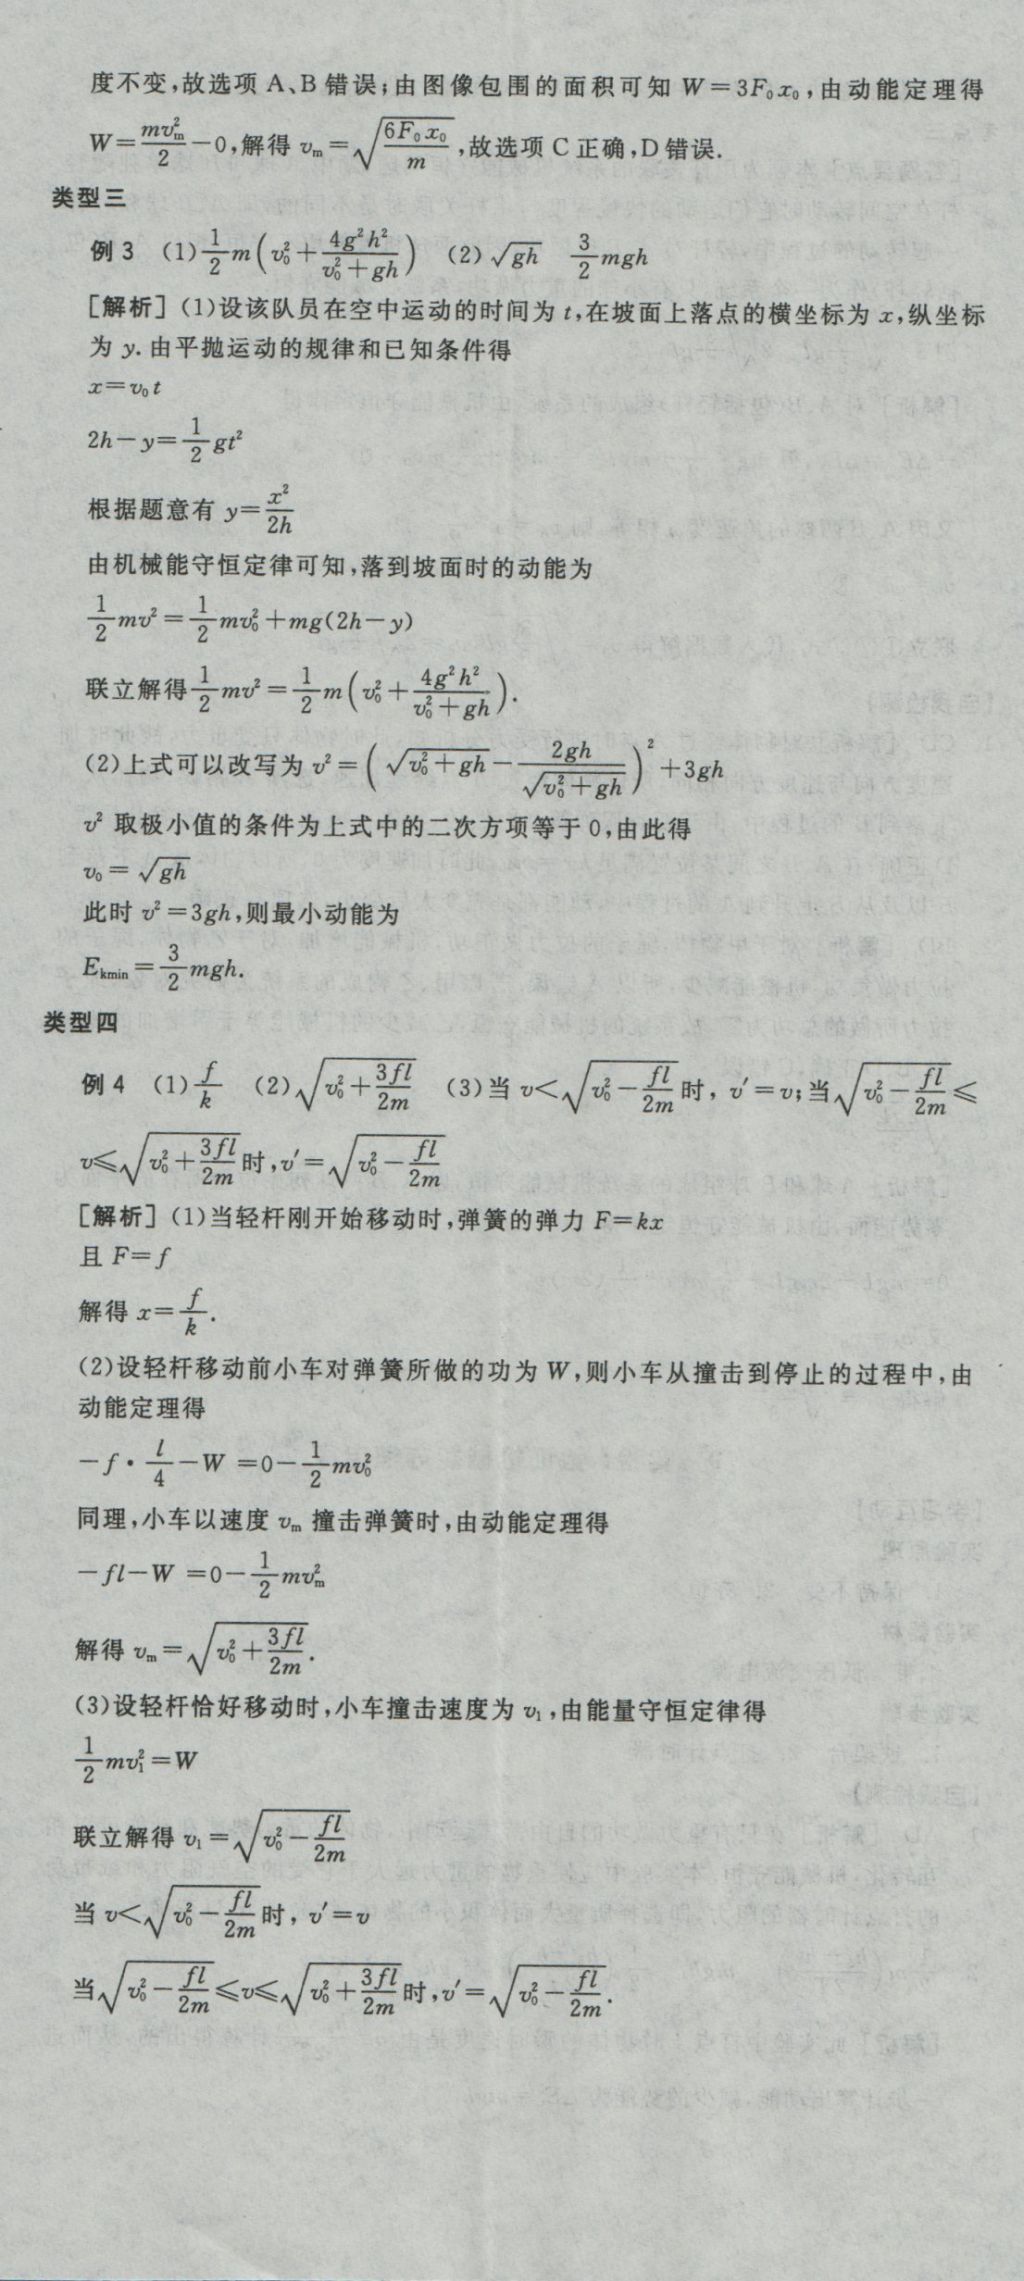 度不变,故选项 A、B 错误;由图像包围的面积可知 W=3F₀x₀,由动能定理得
W=\frac{mv_m^2}{2}-0,解得 v_m=\sqrt{\frac{6F_0x_0}{m}},故选项 C 正确,D 错误.
类型三
例 3 (1)\frac{1}{2}m(v_0^2+\frac{4g^2h^2}{v_0^2+gh}) (2)\sqrt{gh} \frac{3}{2}mgh
[解析](1)设该队员在空中运动的时间为 t,在坡面上落点的横坐标为 x,纵坐标
为 y. 由平抛运动的规律和已知条件得
x=v_0t
2h-y=\frac{1}{2}gt^2
根据题意有 y=\frac{x^2}{2h}
由机械能守恒定律可知,落到坡面时的动能为
\frac{1}{2}mv^2=\frac{1}{2}mv_0^2+mg(2h-y)
联立解得\frac{1}{2}mv^2=\frac{1}{2}m(v_0^2+\frac{4g^2h^2}{v_0^2+gh}).
(2)上式可以改写为 v^2=(\sqrt{v_0^2+gh}-\frac{2gh}{\sqrt{v_0^2+gh}})^2+3gh
v^2 取极小值的条件为上式中的二次方项等于 0,由此得
v_0=\sqrt{gh}
此时 v^2=3gh,则最小动能为
E_{kmin}=\frac{3}{2}mgh.
类型四
例 4 (1)\frac{f}{k} (2)\sqrt{v_0^2+\frac{3fl}{2m}} (3)当 v<\sqrt{v_0^2-\frac{fl}{2m}}时, v'=v;当\sqrt{v_0^2-\frac{fl}{2m}}≤
v≤\sqrt{v_0^2+\frac{3fl}{2m}}时,v'=\sqrt{v_0^2-\frac{fl}{2m}}
[解析](1)当轻杆刚开始移动时,弹簧的弹力 F=kx
且 F=f
解得 x=\frac{f}{k}.
(2)设轻杆移动前小车对弹簧所做的功为 W,则小车从撞击到停止的过程中,由
动能定理得
-f·\frac{l}{4}-W=0-\frac{1}{2}mv_0^2
同理,小车以速度 v_m 撞击弹簧时,由动能定理得
-fl-W=0-\frac{1}{2}mv_m^2
解得 v_m=\sqrt{v_0^2+\frac{3fl}{2m}}.
(3)设轻杆恰好移动时,小车撞击速度为 v_1,由能量守恒定律得
\frac{1}{2}mv_1^2=W
联立解得 v_1=\sqrt{v_0^2-\frac{fl}{2m}}
当 v<\sqrt{v_0^2-\frac{fl}{2m}}时, v'=v
当\sqrt{v_0^2-\frac{fl}{2m}}≤v≤\sqrt{v_0^2+\frac{3fl}{2m}}时,v'=\sqrt{v_0^2-\frac{fl}{2m}}.